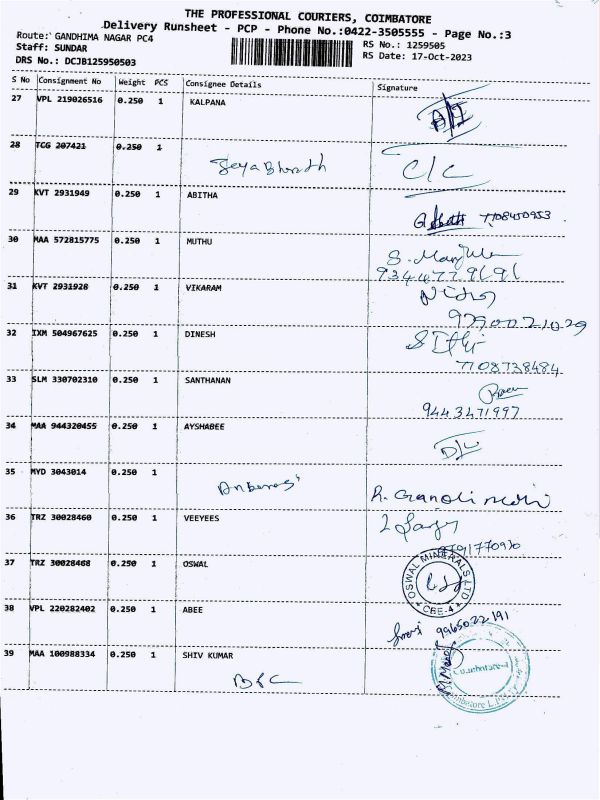 THE PROFESSIONAL COURIERS, COIMBATORE
Delivery Runsheet - PCP - Phone No.:0422-3505555 - Page No.:3
Route: GANDHIMA NAGAR PC4
RS No.: 1259505
Staff: SUNDAR
RS Date: 17-Oct-2023
DRS No.: DCJB125950503
S No Consignment No Weight PCS Consignee Details Signature
27 VPL 219026516 0.250 1 KALPANA
28 TCG 207421 0.250 1
C/C
29 KVT 2931949 0.250 1 ABITHA
7708450953
30 MAA 572815775 0.250 1 MUTHU
S.
31 KVT 2931928 0.250 1 VIKARAM
32 IXM 504967625 0.250 1 DINESH
7708738484
33 SLM 330702310 0.250 1 SANTHANAN
9443471997
34 MAA 944320455 0.250 1 AYSHABEE
35 MYD 3043014 0.250 1
36 TRZ 30028460 0.250 1 VEEYEES
37 TRZ 30028468 0.250 1 OSWAL
OSWAL MINERALS LTD
CBE-4
38 VPL 220282402 0.250 1 ABEE
9965022191
39 MAA 100988334 0.250 1 SHIV KUMAR
Coimbatore-4